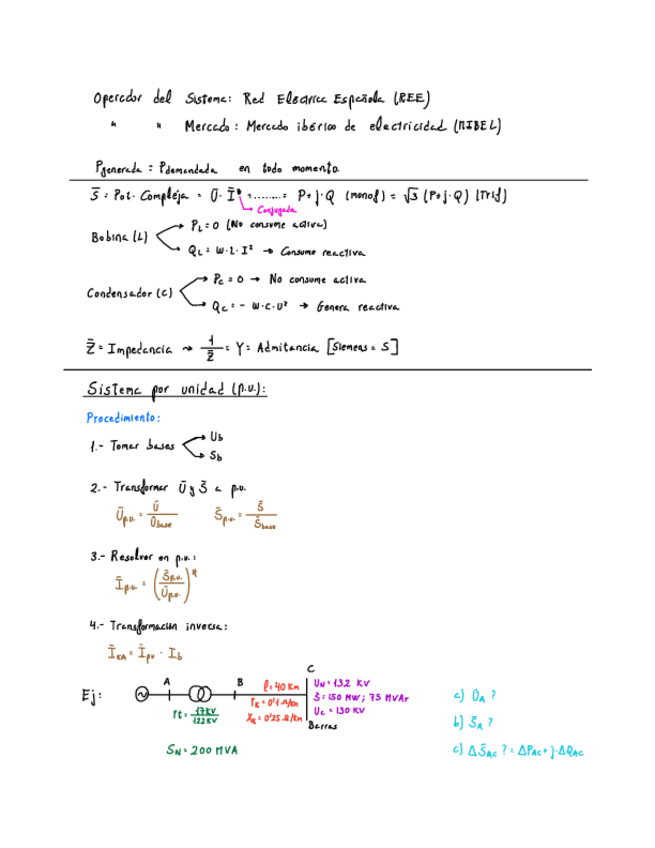 Operador del Sistema: Red Electrica Española (REE)
" " Mercado: Mercado ibérico de electricidad (MIBEL)
Pgenerada = Pdemandada en todo momento.
S̄ = Pot. Compleja = Ū · Ī* = ........ = P + j·Q (monof) = √3 (P+j·Q) (Trif)
Conjugada
Bobina (L)
PL = 0 (No consume activa)
QL = W·L·I² → Consume reactiva
Condensador (C)
Pc = 0 → No consume activa
Qc = - W·C·U² → Genera reactiva
Z̄ = Impedancia ⤳ 1/Z̄ = Y = Admitancia [Siemens = S]
Sistema por unidad (p.u.):
Procedimiento:
1.- Tomar bases
Ub
Sb
2.- Transformar Ū y S̄ a p.u.
Ūp.u. = Ū/Ubase S̄p.u. = S̄/Sbase
3.- Resolver en p.u.:
Īp.u. = (S̄p.u./Ūp.u.)*
4.- Transformación inversa:
ĪKA = Īpu · Ib
Ej:
A
B
C
l = 40 Km
rK = 0'1 Ω/Km
XK = 0'25 Ω/Km
rt = 17KV/122KV
SN = 200 MVA
UN = 132 KV
S̄ = 150 MW; 75 MVAr
Uc = 130 KV
Barras
a) ŪA ?
b) S̄A ?
c) ΔS̄AC ? = ΔPAC + j·ΔQAC